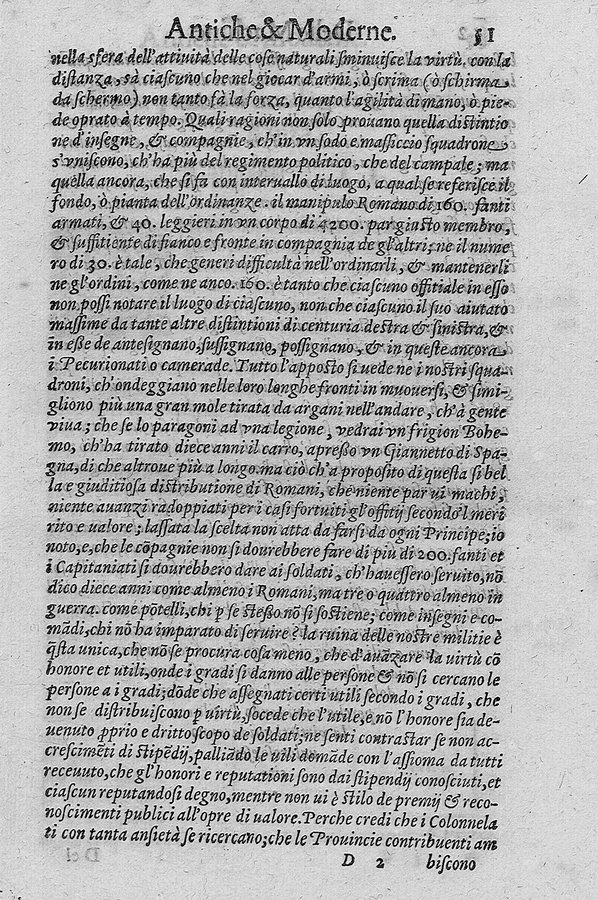 Antiche & Moderne. 51
nella sfera dell'attiuità delle cose naturali sminuisce la virtù. con la
distanza, sà ciascuno che nel giocar d'armi, ò scrima (ò schirma,
da schermo) non tanto fà la forza, quanto l'agilità di mano, ò pie-
de oprato à tempo. Quali ragioni non solo prouano quella distintio
ne d'insegne, & compagnie, ch'in vn sodo e massiccio squadrone
s'vniscono, ch'ha più del regimento politico, che del campale; ma
quella ancora, che si fa con interuallo di luogo, a qual se referisce il
fondo, ò pianta dell'ordinanze. il manipulo Romano di 160. fanti
armati, & 40. leggieri in vn corpo di 4200. par giusto membro,
& suffitiente di fianco e fronte in compagnia de gl'altri; ne il nume
ro di 30. è tale, che generi difficultà nell'ordinarli, & mantenerli
ne gl'ordini, come ne anco. 160. è tanto che ciascuno offitiale in esso
non possi notare il luogo di ciascuno, non che ciascuno il suo aiutato
massime da tante altre distintioni di centuria destra & sinistra, &
in eße de antesignano, sussignano, possignano, & in queste ancora
i Pecurionati o camerade. Tutto l'apposto si uede ne i nostri squa-
droni, ch'ondeggiano nelle loro longhe fronti in muouersi, & simi-
gliono più una gran mole tirata da argani nell'andare, ch'à gente
viua; che se lo paragoni ad vna legione, vedrai vn frigion Bohe-
mo, ch'ha tirato diece anni il carro, apreßo vn Giannetto di Spa-
gna, di che altroue più a longo. ma ciò ch'a proposito di questa si bel
la e giuditiosa distributione di Romani, che niente par ui machi,
niente auanzi radoppiati per i casi fortuiti gl'offitij secondo'l meri
rito e ualore; lassata la scelta non atta da farsi da ogni Principe; io
noto, e, che le cōpagnie non si dourebbere fare di più di 200. fanti et
i Capitaniati si dourebbero dare ai soldati, ch'hauessero seruito, nō
dico diece anni come almeno i Romani, ma tre o quattro almeno in
guerra. come pōtelli, chi p se steßo nō si sostiene; come insegni e co-
mādi, chi nō ha imparato di seruire? la ruina delle nostre militie è
q̄sta unica, che nō se procura cosa meno, che d'auāzare la virtù cō
honore et utili, onde i gradi si danno alle persone & nō si cercano le
persone a i gradi; dōde che assegnati certi utili secondo i gradi, che
non se distribuiscono p uirtù, socede che l'utile, e nō l'honore sia de-
uenuto p̄prio e dritto scopo de soldati; ne senti contrastar se non ac-
crescimēti di stipēdij, palliādo le uili domāde con l'assioma da tutti
receuuto, che gl'honori e reputationi sono dai stipendij conosciuti, et
ciascun reputandosi degno, mentre non ui è stilo de premij & reco-
noscimenti publici all'opre di ualore. Perche credi che i Colonnela
ti con tanta ansietà se ricercano; che le Prouincie contribuenti am
D 2 biscono